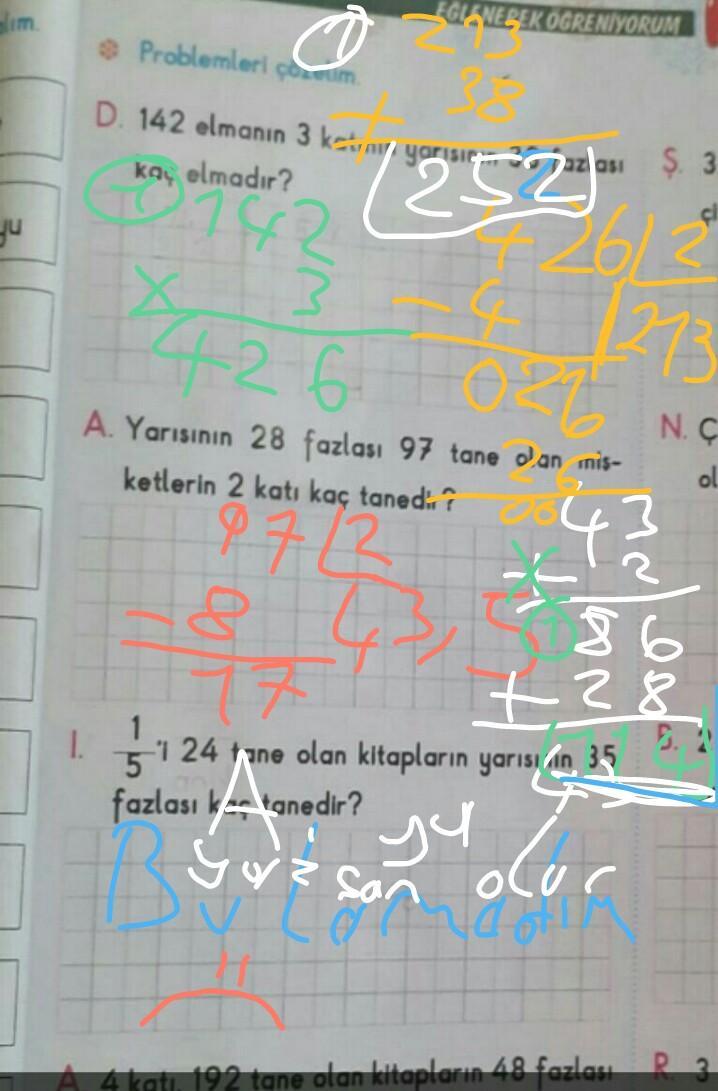 EĞLENEREK ÖĞRENİYORUM
alım.
Problemleri çözelim.
D. 142 elmanın 3 katının yarısının 38 fazlası
kaç elmadır?
1
213
+ 38
252
1
142
x 3
426
426 2
- 4 213
026
26
00
A. Yarısının 28 fazlası 97 tane olan mis-
ketlerin 2 katı kaç tanedir?
97 2
- 8 43,5
17
43
x 2
1 86
+ 28
114
I. 1/5'i 24 tane olan kitapların yarısının 35
fazlası kaç tanedir?
A yı
yazarsan olur
Bulamadım
A. 4 katı, 192 tane olan kitapların 48 fazlası
yu
Ş. 3
çi
N. Ç
ol
P. 2
R. 3